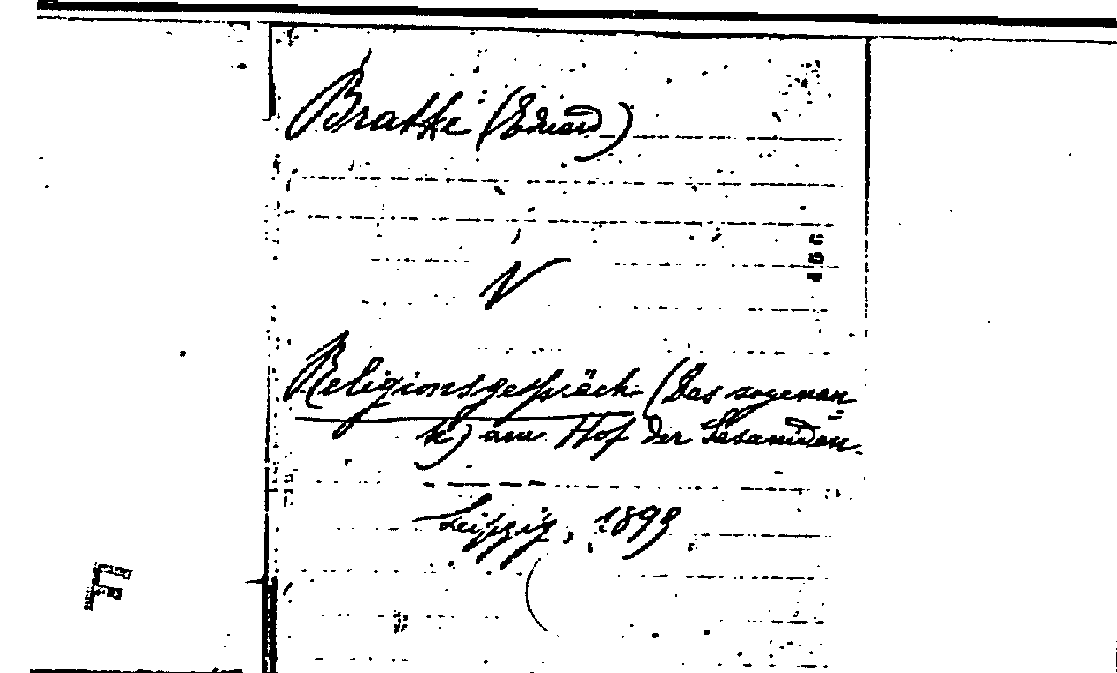 Bratke (Eduard)
N
Religionsgespräch (Das sogenan
te) am Hof der Sasaniden.
Leipzig, 1899